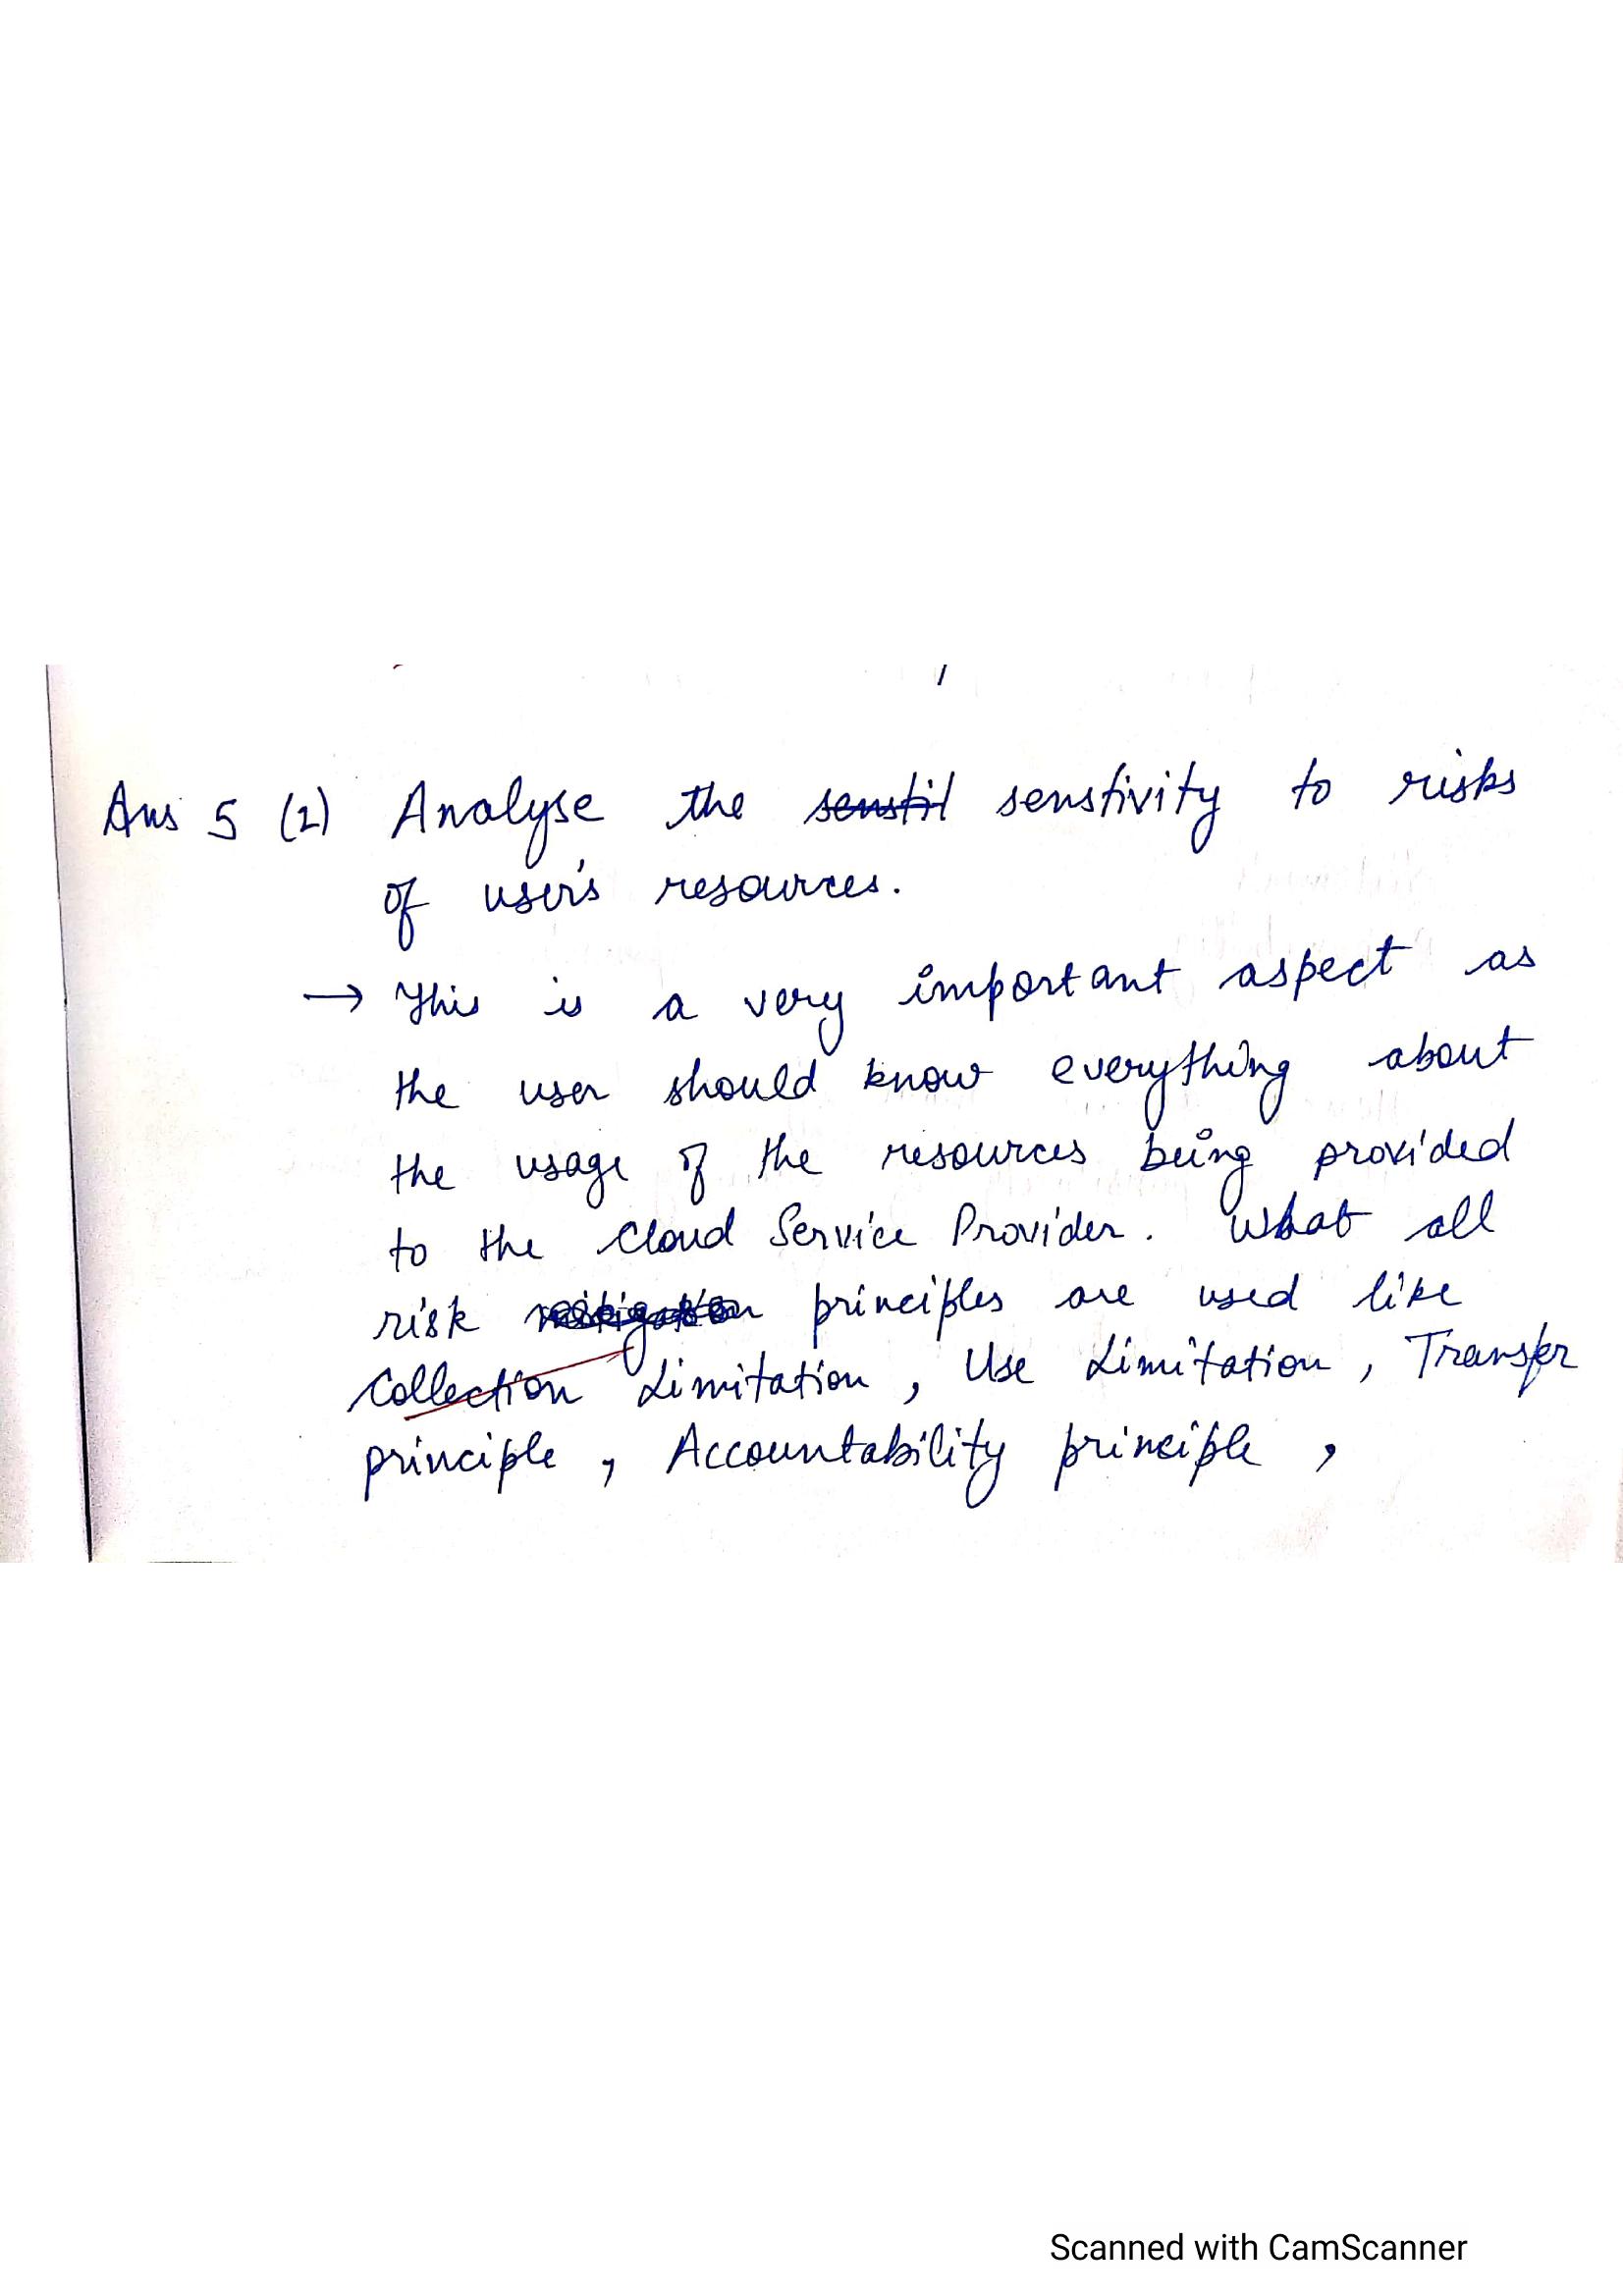 Ans 5 (2) Analyse the senstil senstivity to risks
of user's resources.
→ This is a very important aspect as
the user should know everything about
the usage of the resources being provided
to the Cloud Service Provider. What all
risk principles are used like
Collection Limitation, Use Limitation, Transfer
principle, Accountability principle,
Scanned with CamScanner